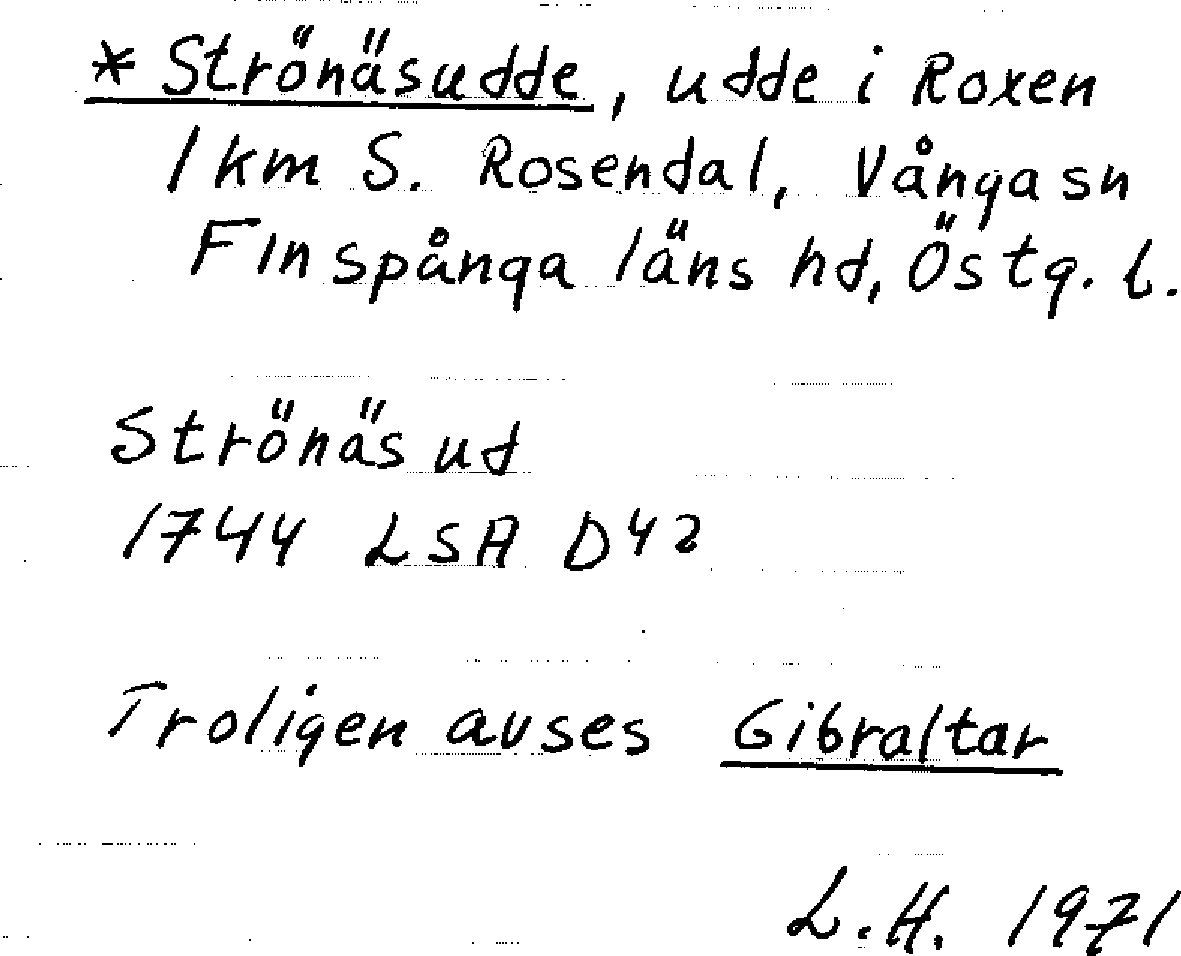 * Strönäsudde, udde i Roxen
1 km S. Rosendal, Vånga sn
Finspånga läns hd, Östg. l.
Strönäs ud
1744 LSA D42
Troligen avses Gibraltar
L.H. 1971